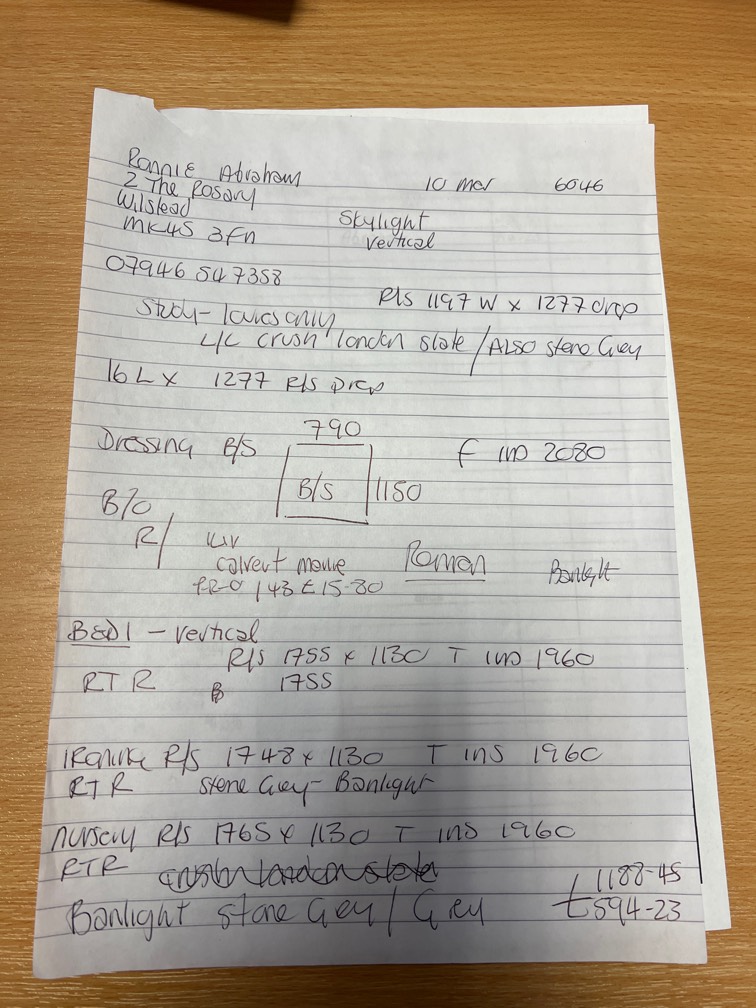 Ronnie Abraham 10 mar 6046
2 The Rosary
Wilstead Skylight
MK45 3FN vertical
07946 547358
R/S 1197 W x 1277 drop
Study - louvres only
L/L crush london slate / ALSO stone Grey
16 L x 1277 R/S Drop
790
Dressing B/S F INS 2080
B/S 1150
B/O
R/
calvert
Roman Banlight
PR-0143 £15-80
BED 1 - vertical
R/S 1755 x 1130 T INS 1960
RTR B 1755
R/S 1748 x 1130 T INS 1960
RTR Stone Grey - Banlight
Nursery R/S 1765 x 1130 T INS 1960
RTR crush london slate
1188-45
Banlight stone Grey / Grey £594-23